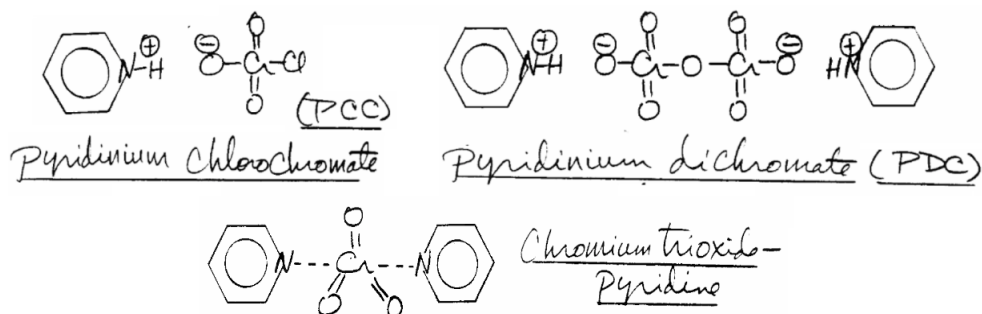 N-H ⊕ ⊖ O-Cr-Cl O O
(PCC)
Pyridinium Chlorochromate
N-H ⊕ ⊖ O-Cr-O-Cr-O ⊖ O O O O HN ⊕
Pyridinium dichromate (PDC)
N---Cr---N O O O
Chromium trioxide-
Pyridine